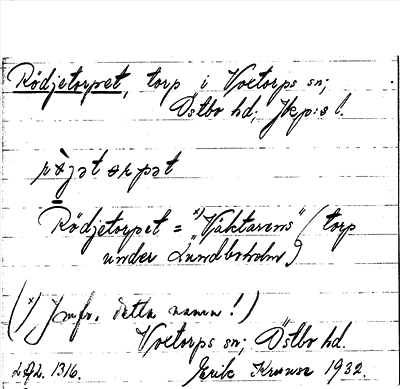 Rödjetorpet, torp i Voetorps sn;
Östbo hd; Jkp:s l.
Rödjetorpet = x) "Vaktarens" (torp
under Lundboholm)
(x) Jmfr. detta namn!)
Voetorps sn; Östbo hd.
1316. Erik Kruuse 1932.